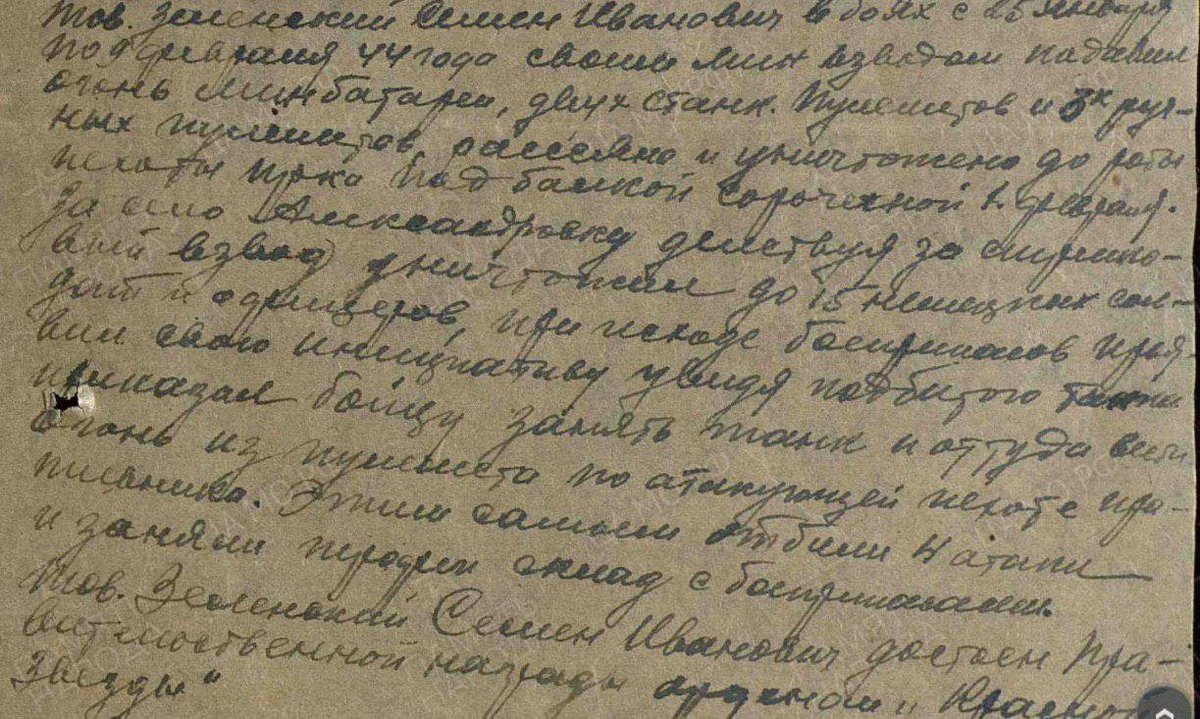 тов. Зеленский Семен Иванович в боях с 25 января
по 9 февраля 44 года своим мин взводом подавил
огонь минбатареи, двух станк. пулеметов и 3х руч-
ных пулеметов, рассеяно и уничтожено до роты
пехоты пр-ка под балкой Сорочехной 1. февраля.
За село Александровку действуя за стрелко-
вый взвод уничтожил до 15 немецких сол-
дат и офицеров, при исходе боеприпасов прояв-
вил свою инициативу увидя подбитого танка
приказал бойцу занять танк и оттуда вести
огонь из пулемета по атакующей пехоте про-
тивника. Этим самым отбили 4 атаки
и заняли трофеи склад с боеприпасами.
Тов. Зеленский Семен Иванович достоен Пра-
вительственной награды орденом „Красной
Звезды"